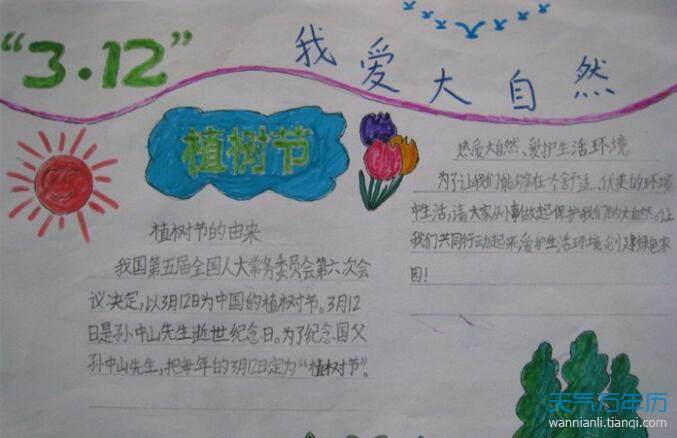 “3.12”
我爱大自然
植树节
植树节的由来
我国第五届全国人大常务委员会第六次会
议决定,以3月12日为中国的植树节。3月12
日是孙中山先生逝世纪念日。为了纪念国父
孙中山先生,把每年的3月12日定为“植树节”。
热爱大自然、爱护生活环境
为了让我们能够在一个舒适、优美的环境
中生活,请大家从小事做起保护我们的大自然。让
我们共同行动起来,爱护生活环境,创建绿色家
园!
天气万年历
wannianli.tianqi.com